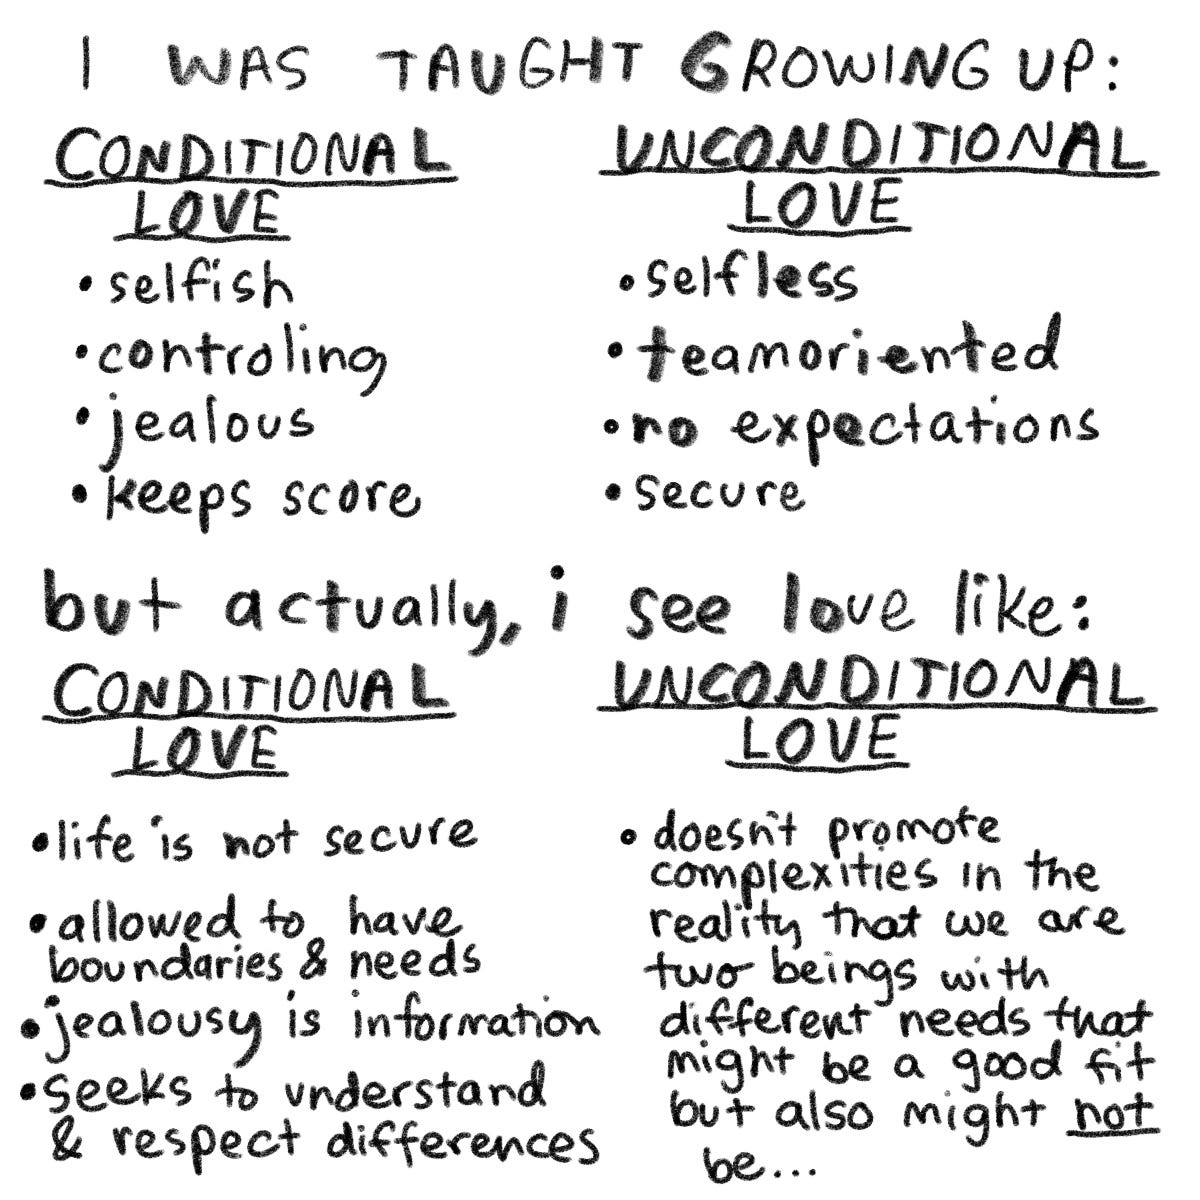 I WAS TAUGHT GROWING UP:
CONDITIONAL
LOVE
• selfish
• controling
• jealous
• keeps score
UNCONDITIONAL
LOVE
• selfless
• teamoriented
• no expectations
• secure
but actually, i see love like:
CONDITIONAL
LOVE
• life is not secure
• allowed to have
boundaries & needs
• jealousy is information
• seeks to understand
& respect differences
UNCONDITIONAL
LOVE
• doesn't promote
complexities in the
reality that we are
two beings with
different needs that
might be a good fit
but also might not
be...